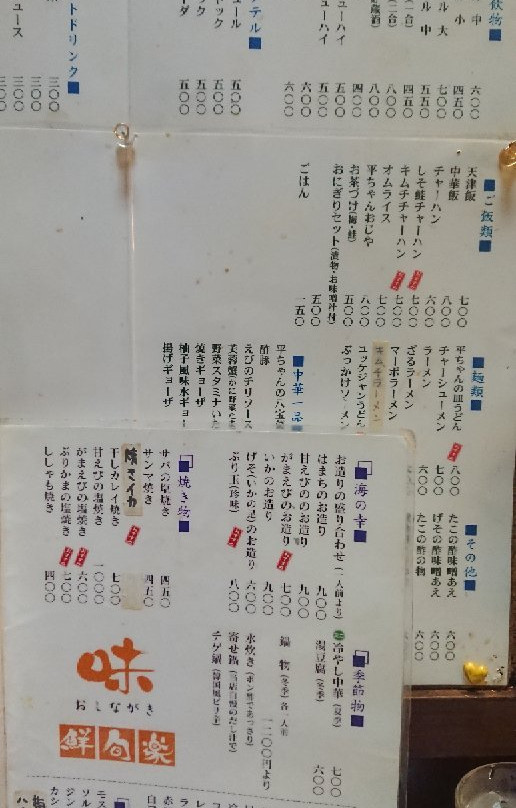 飲物
中 六〇〇
小 四五〇
ル 大 七〇〇
ル 中 五五〇
(二合) 八〇〇
テル
ュール 五〇〇
ドック 五〇〇
ック 五〇〇
ーダ 五〇〇
トドリンク
三〇〇
三〇〇
ュース 三〇〇
ご飯類
天津飯 七〇〇
中華飯 八〇〇
チャーハン 六〇〇
しそ鮭チャーハン 七〇〇
キムチチャーハン 七〇〇
オムライス 七〇〇
平ちゃんおじや 八〇〇
お茶づけ(梅・鮭) 五〇〇
おにぎりセット(漬物・お味噌汁付) 五〇〇
ごはん 一五〇
麺類
平ちゃんの皿うどん 八〇〇
チャーシューメン 七〇〇
ラーメン 六〇〇
ざるラーメン
マーボラーメン
キムチラーメン
ユッケジャンうどん
ぶっかけソーメン
中華一品
平ちゃんの八宝
酢豚
えびのチリソース
芙蓉蟹(かに野菜たま
野菜スタミナいた
焼きギョーザ
柚子風味水ギョー
揚げギョーザ
その他
たこの酢味噌あえ 六〇〇
げその酢味噌あえ 六〇〇
たこの酢の物 六〇〇
海の幸
お造りの盛り合わせ(一人前より)
はまちのお造り 九〇〇
甘えびのお造り 九〇〇
がまえびのお造り 七〇〇
いかのお造り 九〇〇
げそ(いかの足)のお造り 六〇〇
ぶり玉(珍味) 八〇〇
焼き物
サバの塩焼き 四五〇
サンマ焼き 四五〇
焼きイカ
干しカレイ焼き 七〇〇
甘えびの塩焼き 一〇〇〇
がまえびの塩焼き 六〇〇
ぶりかまの塩焼き 七〇〇
ししゃも焼き 四〇〇
季節物
冷やし中華(夏季) 七〇〇
湯豆腐(冬季) 六〇〇
鍋 物(冬季)各一人前
一二〇〇円より
水炊き(ポン酢であっさり)
寄せ鍋(当店自慢のだし汁で)
チゲ鍋(韓国風ピリ辛)
味
おしながき
鮮旬楽